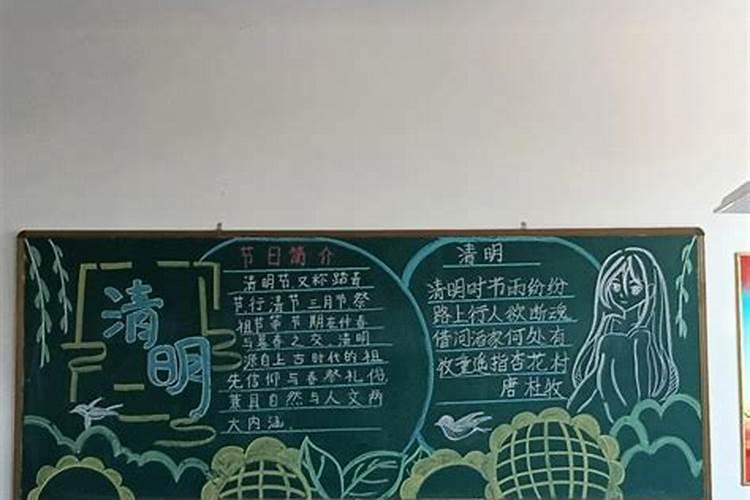 清
明
节日简介
清明节又称踏青
节行清节三月节祭
祖节等节期在仲春
与暮春之交 清明
源自上古时代的祖
先信仰与春祭礼俗
兼具自然与人文两
大内涵.
清明
清明时节雨纷纷
路上行人欲断魂
借问酒家何处有
牧童遥指杏花村
唐 杜牧